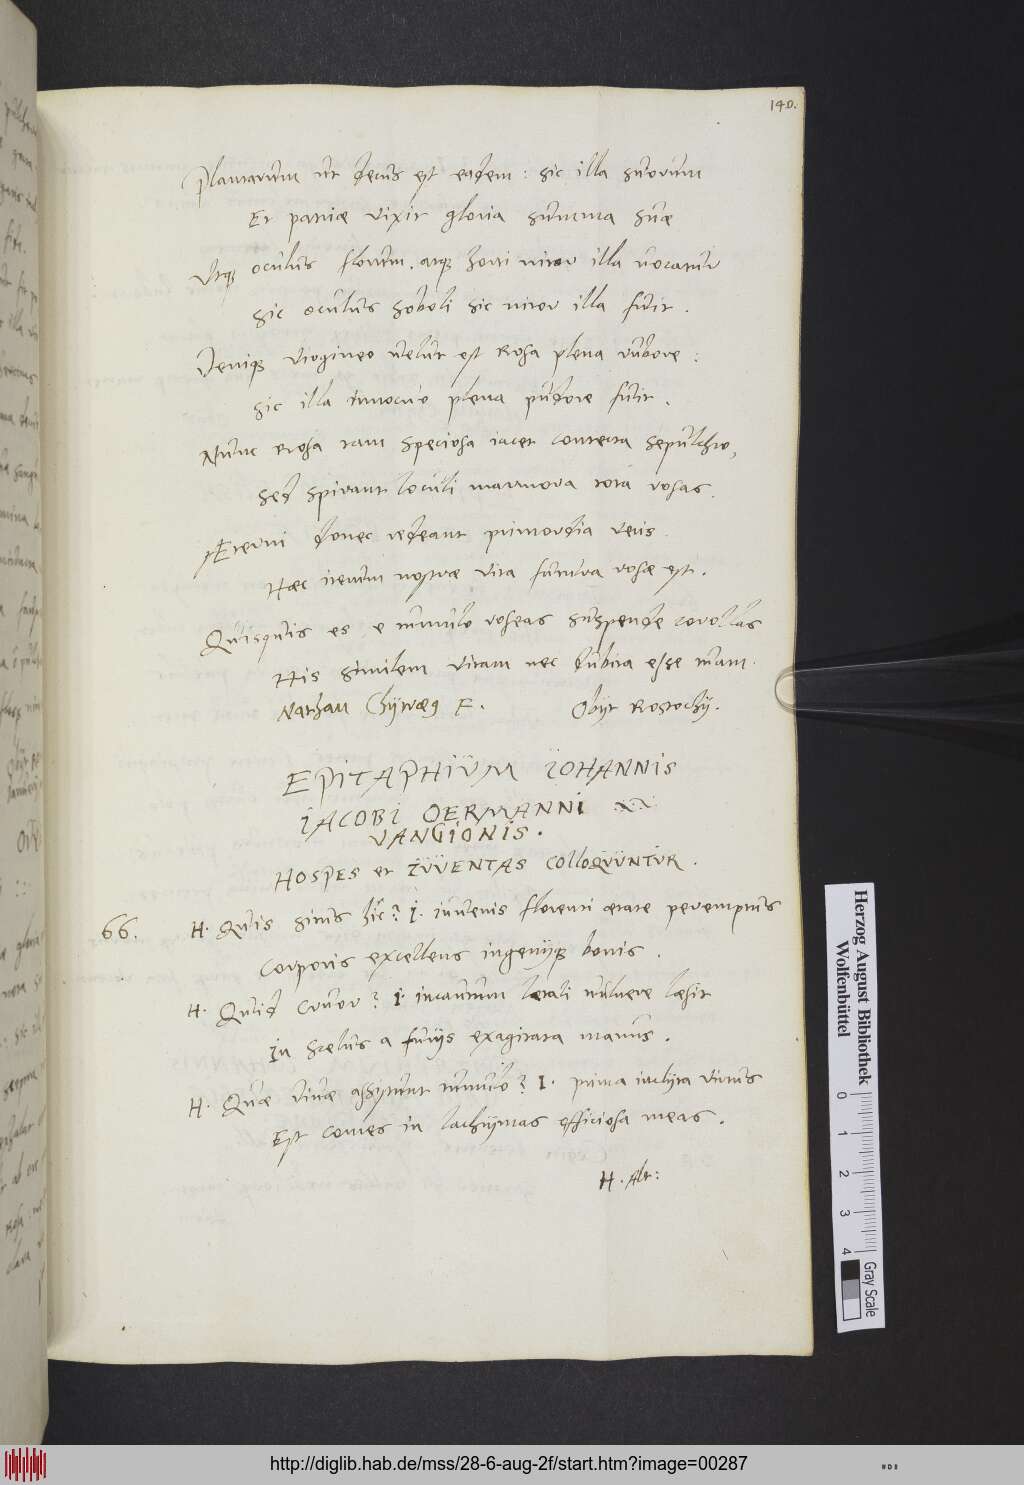 140.
Plantarum ut decus est eadem: sic illa suorum
Et patriæ vixit gloria summa suæ
Utq; oculus florum, atq; horti nitor illa vocatur
sic oculus soboli sic nitor illa fuit.
Deniq; virgineo velut est Rosa plena rubore:
sic illa innocuo plena pudore fuit.
Nunc rosa tam speciosa iacet contecta sepulchro,
sed spirant loculi marmora tota rosas.
Æterni donec redeant primordia veris.
Hæc iterum nostræ vita futura rosæ est.
Quisquis es, e tumulo roseas suspende corollas
His similem vitam nec dubita esse tuam.
Nathan Chytræg F. Obijt Rostochij.
EPITAPHIÜM IOHANNIS
IACOBI OERMANNI
VANGIONIS.
HOSPES et IÜVENTAS COLLOQÜÜNTUR.
66. H. Quis situs hic? I. iuvenis florenti ætate peremptus
Corporis excellens ingenijq; bonis.
H. Quid cruor? I. incautum letali vulnere læsit
In scelus a furijs exagitata manus.
H. Quæ divæ assunt tumulo? I. prima inclyta virtus
Est comes in lachrijmas officiosa meas.
H. Alt:
Herzog August Bibliothek
Wolfenbüttel
0 1 2 3 4
Gray Scale
http://diglib.hab.de/mss/28-6-aug-2f/start.htm?image=00287